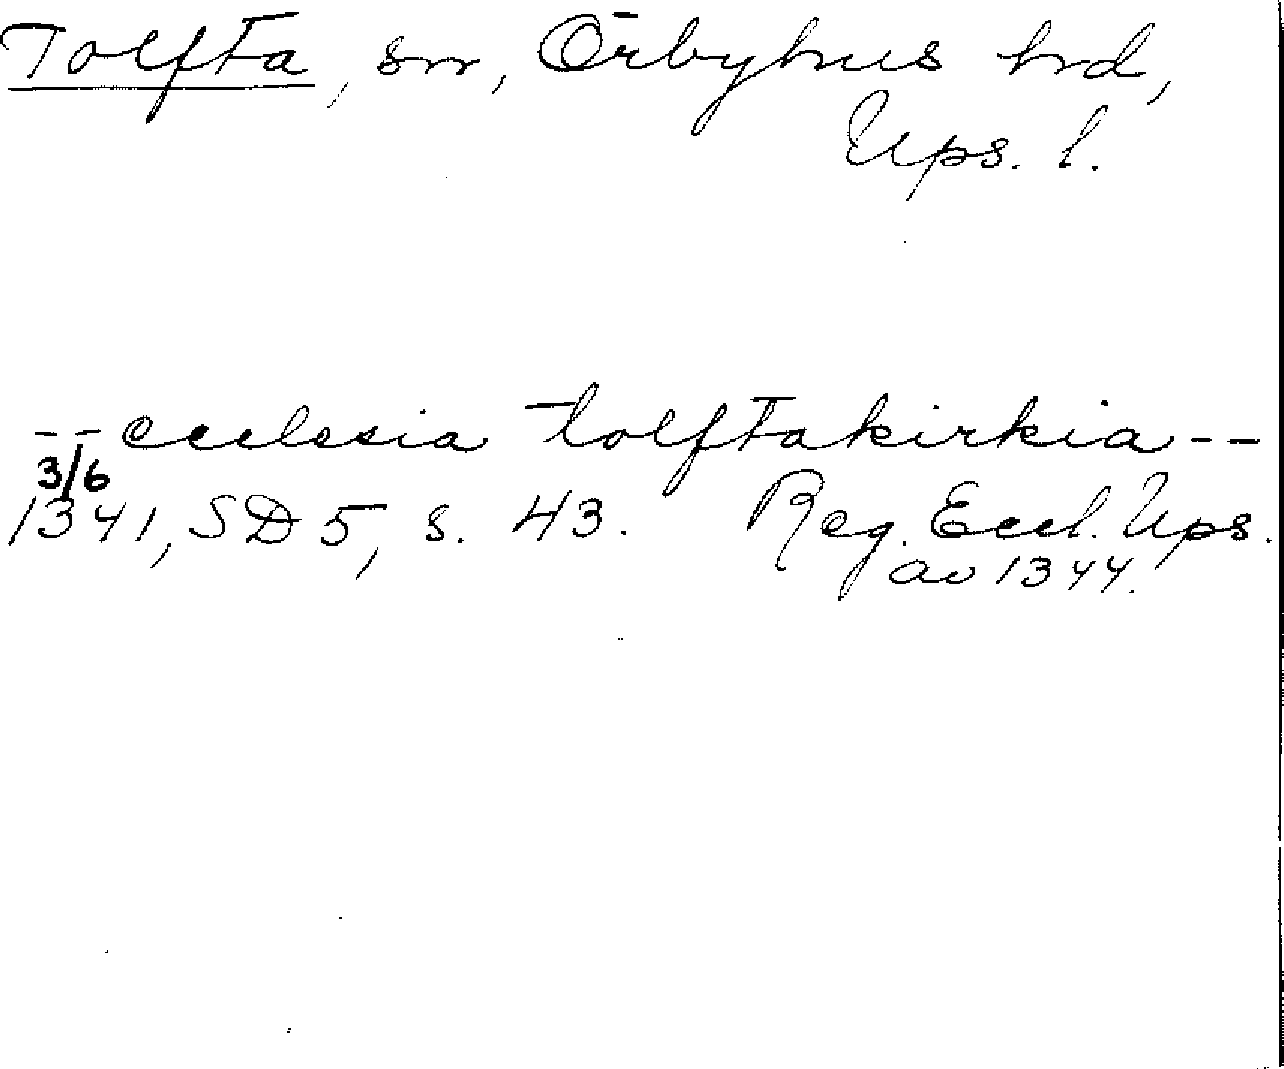 Tolfta, sn, Örbyhus hrd,
Ups. l.
-- ecclesia tolftakirkia --
3/6
1341, SD 5, s. 43. Reg. Eccl. Ups.
av 1344.